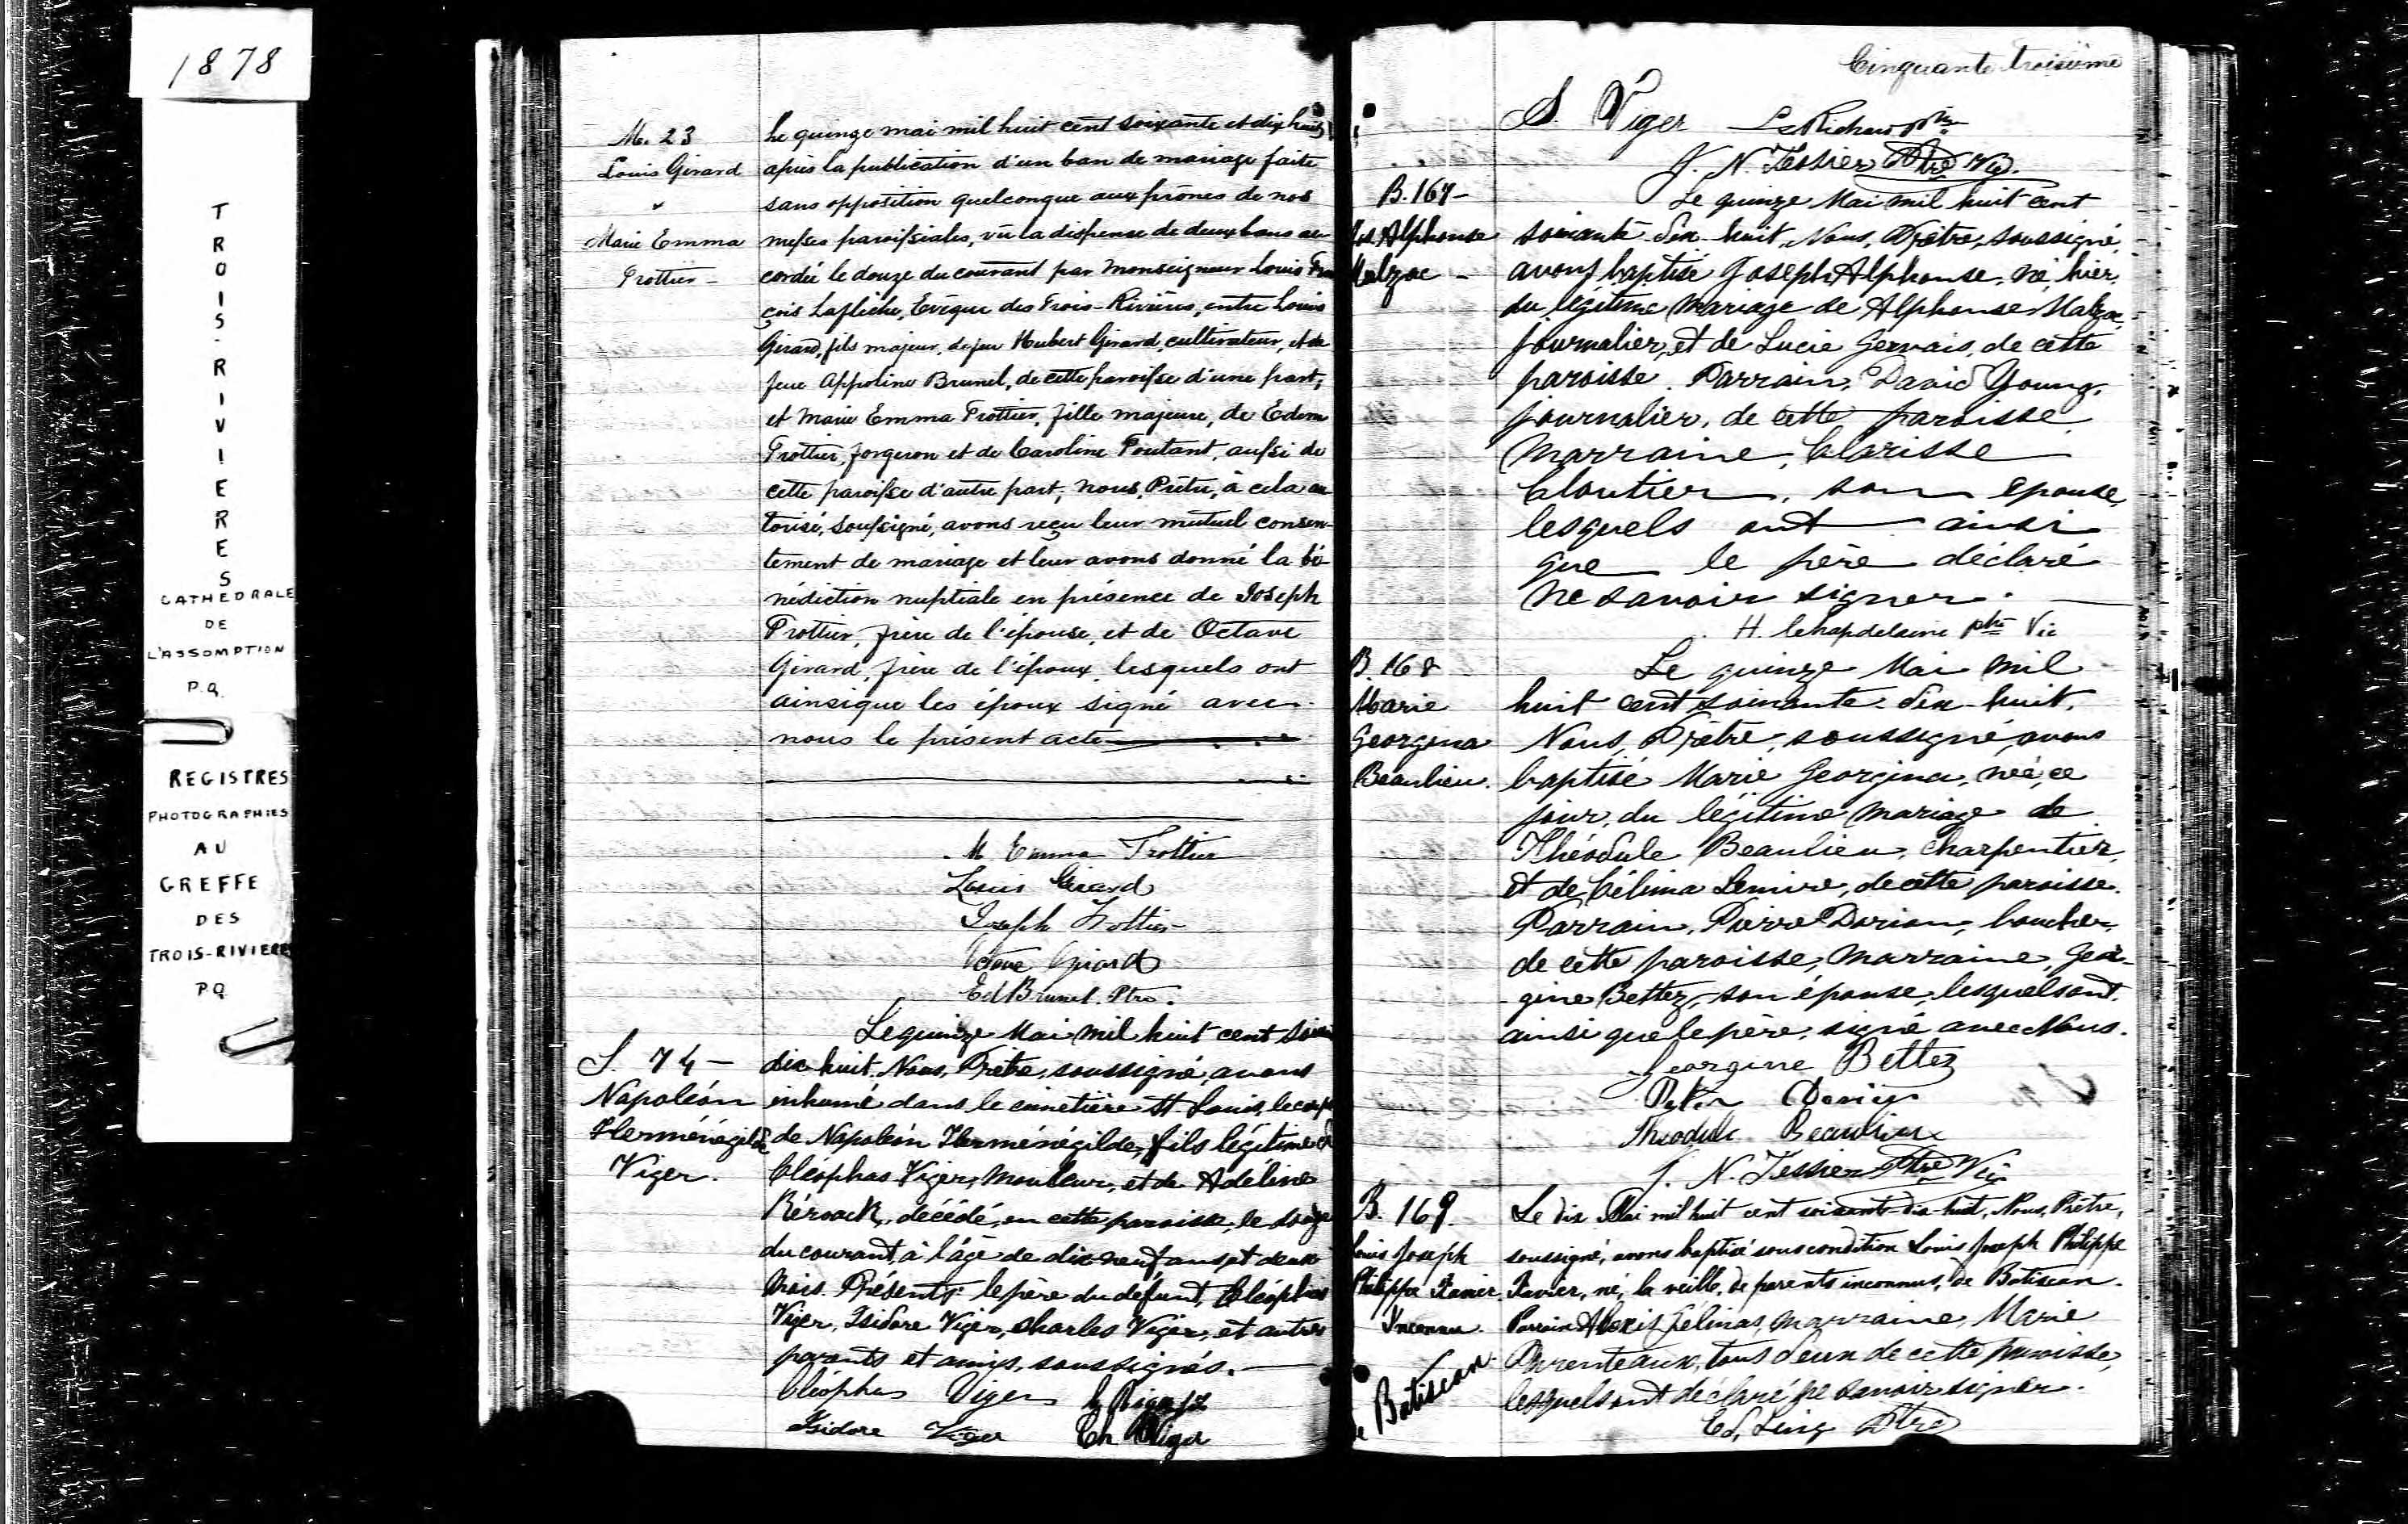 1878
TROIS-RIVIERES
CATHEDRALE
DE
L'ASSOMPTION
P.Q.
REGISTRES
PHOTOGRAPHIES
AU
GREFFE
DES
TROIS-RIVIERES
PQ
M. 23
Louis Girard
&
Marie Emma
Trottier
Le quinze mai mil huit cent soixante et dix huit
après la publication d'un ban de mariage faite
sans opposition quelconque aux prônes de nos
messes paroissiales, vû la dispense de deux bans ac-
cordée le douze du courant par Monseigneur Louis Fran
çois Laflèche, Evêque des Trois-Rivières, entre Louis
Girard, fils majeur, de feu Hubert Girard, cultivateur, et de
feue Appoline Brunel, de cette paroisse d'une part;
et Marie Emma Trottier, fille majeure, de Edem
Trottier, forgeron et de Caroline Toutant, aussi de
cette paroisse d'autre part, nous, Prêtre, à cela au
torisé, soussigné, avons reçu leur mutuel consen-
tement de mariage et leur avons donné la bé-
nédiction nuptiale en présence de Joseph
Trottier, frère de l'épouse, et de Octave
Girard, frère de l'époux, lesquels ont
ainsi que les époux signé avec
nous le présent acte
M Emma Trottier
Louis Girard
Joseph Trottier
Octave Girard
Ed Brunel. Ptre.
S. 74 -
Napoléon
Herménégilde
Viger.
Le quinze Mai mil huit cent soixante
dix huit, Nous, Prêtre, soussigné, avons
inhumé dans le cimetière St Louis, le corps
de Napoléon Herménégilde, fils légitime de
Cléophas Viger, Mouleur, et de Adéline
Kéroack, décédé, en cette paroisse, le douze
du courant, à l'âge de dix neuf ans, et deux
mois. Présents: le père du défunt, Cléophas
Viger, Isidore Viger, Charles Viger, et autres
parents et amis, soussignés.
Cléophas Viger
Isidore Viger Ch Viger
Cinquante troisième
S. Viger
J. N. Tessier Ptre Vic.
B. 167 -
Jos. Alphonse
Malzac -
Le quinze Mai mil huit cent
soixante-dix-huit, Nous, Prêtre, soussigné,
avons baptisé Joseph Alphonse, né, hier,
du légitime mariage de Alphonse Malzac,
journalier, et de Lucie Gervais, de cette
paroisse. Parrain, David Young,
journalier, de cette paroisse
Marraine, Clarisse
Cloutier, son épouse,
lesquels ont ainsi
que le père déclaré
ne savoir signer.
H. Chapdelaine ptre Vic
B. 168
Marie
Georgina
Beaulieu.
Le quinze Mai mil
huit cent soixante-dix-huit,
Nous, Prêtre, soussigné, avons
baptisé Marie Georgina, née, ce
jour, du légitime mariage de
Théodule Beaulieu, charpentier,
et de Célima Lemire, de cette paroisse.
Parrain, Pierre Dorion, boucher,
de cette paroisse, Marraine, Geor-
gine Bettez, son épouse, lesquels ont,
ainsi que le père, signé avec Nous.
Georgine Bettez
Théodule Beaulieu
J. N. Tessier Ptre Vic
B. 169.
Louis Joseph
Philippe Xavier
Inconnu.
de Batiscan.
Le dix Mai mil huit cent soixante dix huit, Nous, Prêtre,
soussigné, avons baptisé sous condition Louis Joseph Philippe
Xavier, né, la veille, de parents inconnus, de Batiscan.
Parrain Alexis Gélinas, Marraine, Marie
Parenteaux, tous deux de cette paroisse,
lesquels ont déclaré ne savoir signer.
Ed. Ling Ptre